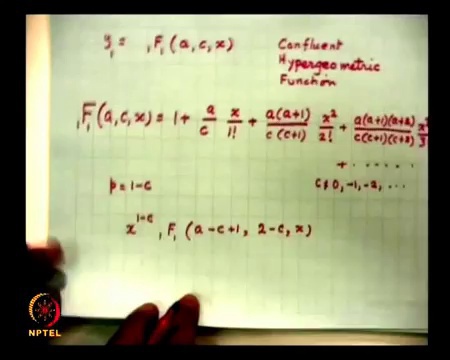 y₁ = ₁F₁ (a, c, x) Confluent
Hypergeometric
Function
₁F₁(a, c, x) = 1 + a/c x/1! + a(a+1)/c(c+1) x²/2! + a(a+1)(a+2)/c(c+1)(c+2) x³/3!
+ ......
p = 1-c c ≠ 0, -1, -2, ...
x^{1-c} ₁F₁ (a-c+1, 2-c, x)
NPTEL